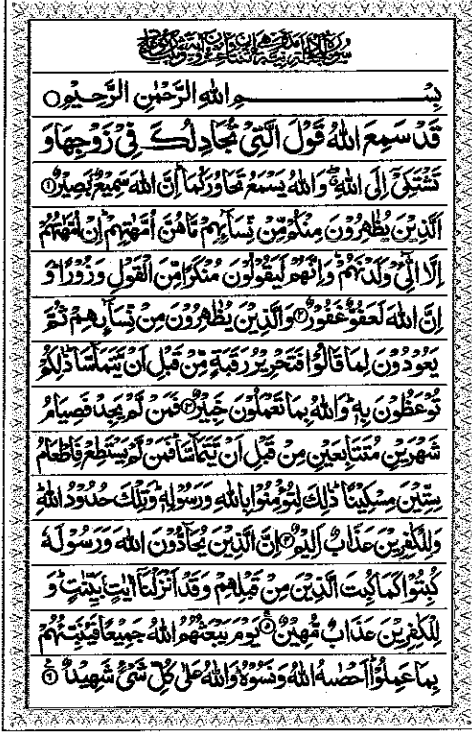 سورة المجادلة مدنية
بِسْمِ اللهِ الرَّحْمٰنِ الرَّحِيْمِ
قَدْ سَمِعَ اللهُ قَوْلَ الَّتِيْ تُجَادِلُكَ فِيْ زَوْجِهَا وَ
تَشْتَكِيْ اِلَى اللهِ وَاللهُ يَسْمَعُ تَحَاوُرَكُمَا اِنَّ اللهَ سَمِيْعٌ بَصِيْرٌ ۝۱
اَلَّذِيْنَ يُظٰهِرُوْنَ مِنْكُمْ مِّنْ نِّسَآئِهِمْ مَّا هُنَّ اُمَّهٰتِهِمْ اِنْ اُمَّهٰتُهُمْ
اِلَّا الّٰٓئِيْ وَلَدْنَهُمْ وَاِنَّهُمْ لَيَقُوْلُوْنَ مُنْكَرًا مِّنَ الْقَوْلِ وَزُوْرًا وَ
اِنَّ اللهَ لَعَفُوٌّ غَفُوْرٌ ۝۲ وَالَّذِيْنَ يُظٰهِرُوْنَ مِنْ نِّسَآئِهِمْ ثُمَّ
يَعُوْدُوْنَ لِمَا قَالُوْا فَتَحْرِيْرُ رَقَبَةٍ مِّنْ قَبْلِ اَنْ يَّتَمَآسَّا ذٰلِكُمْ
تُوْعَظُوْنَ بِهٖ وَاللهُ بِمَا تَعْمَلُوْنَ خَبِيْرٌ ۝۳ فَمَنْ لَّمْ يَجِدْ فَصِيَامُ
شَهْرَيْنِ مُتَتَابِعَيْنِ مِنْ قَبْلِ اَنْ يَّتَمَآسَّا فَمَنْ لَّمْ يَسْتَطِعْ فَاِطْعَامُ
سِتِّيْنَ مِسْكِيْنًا ذٰلِكَ لِتُؤْمِنُوْا بِاللهِ وَرَسُوْلِهٖ وَتِلْكَ حُدُوْدُ اللهِ
وَلِلْكٰفِرِيْنَ عَذَابٌ اَلِيْمٌ ۝۴ اِنَّ الَّذِيْنَ يُحَآدُّوْنَ اللهَ وَرَسُوْلَهٗ
كُبِتُوْا كَمَا كُبِتَ الَّذِيْنَ مِنْ قَبْلِهِمْ وَقَدْ اَنْزَلْنَآ اٰيٰتٍۭ بَيِّنٰتٍ وَ
لِلْكٰفِرِيْنَ عَذَابٌ مُّهِيْنٌ ۝۵ يَوْمَ يَبْعَثُهُمُ اللهُ جَمِيْعًا فَيُنَبِّئُهُمْ
بِمَا عَمِلُوْا اَحْصٰىهُ اللهُ وَنَسُوْهُ وَاللهُ عَلٰى كُلِّ شَيْءٍ شَهِيْدٌ ۝۶